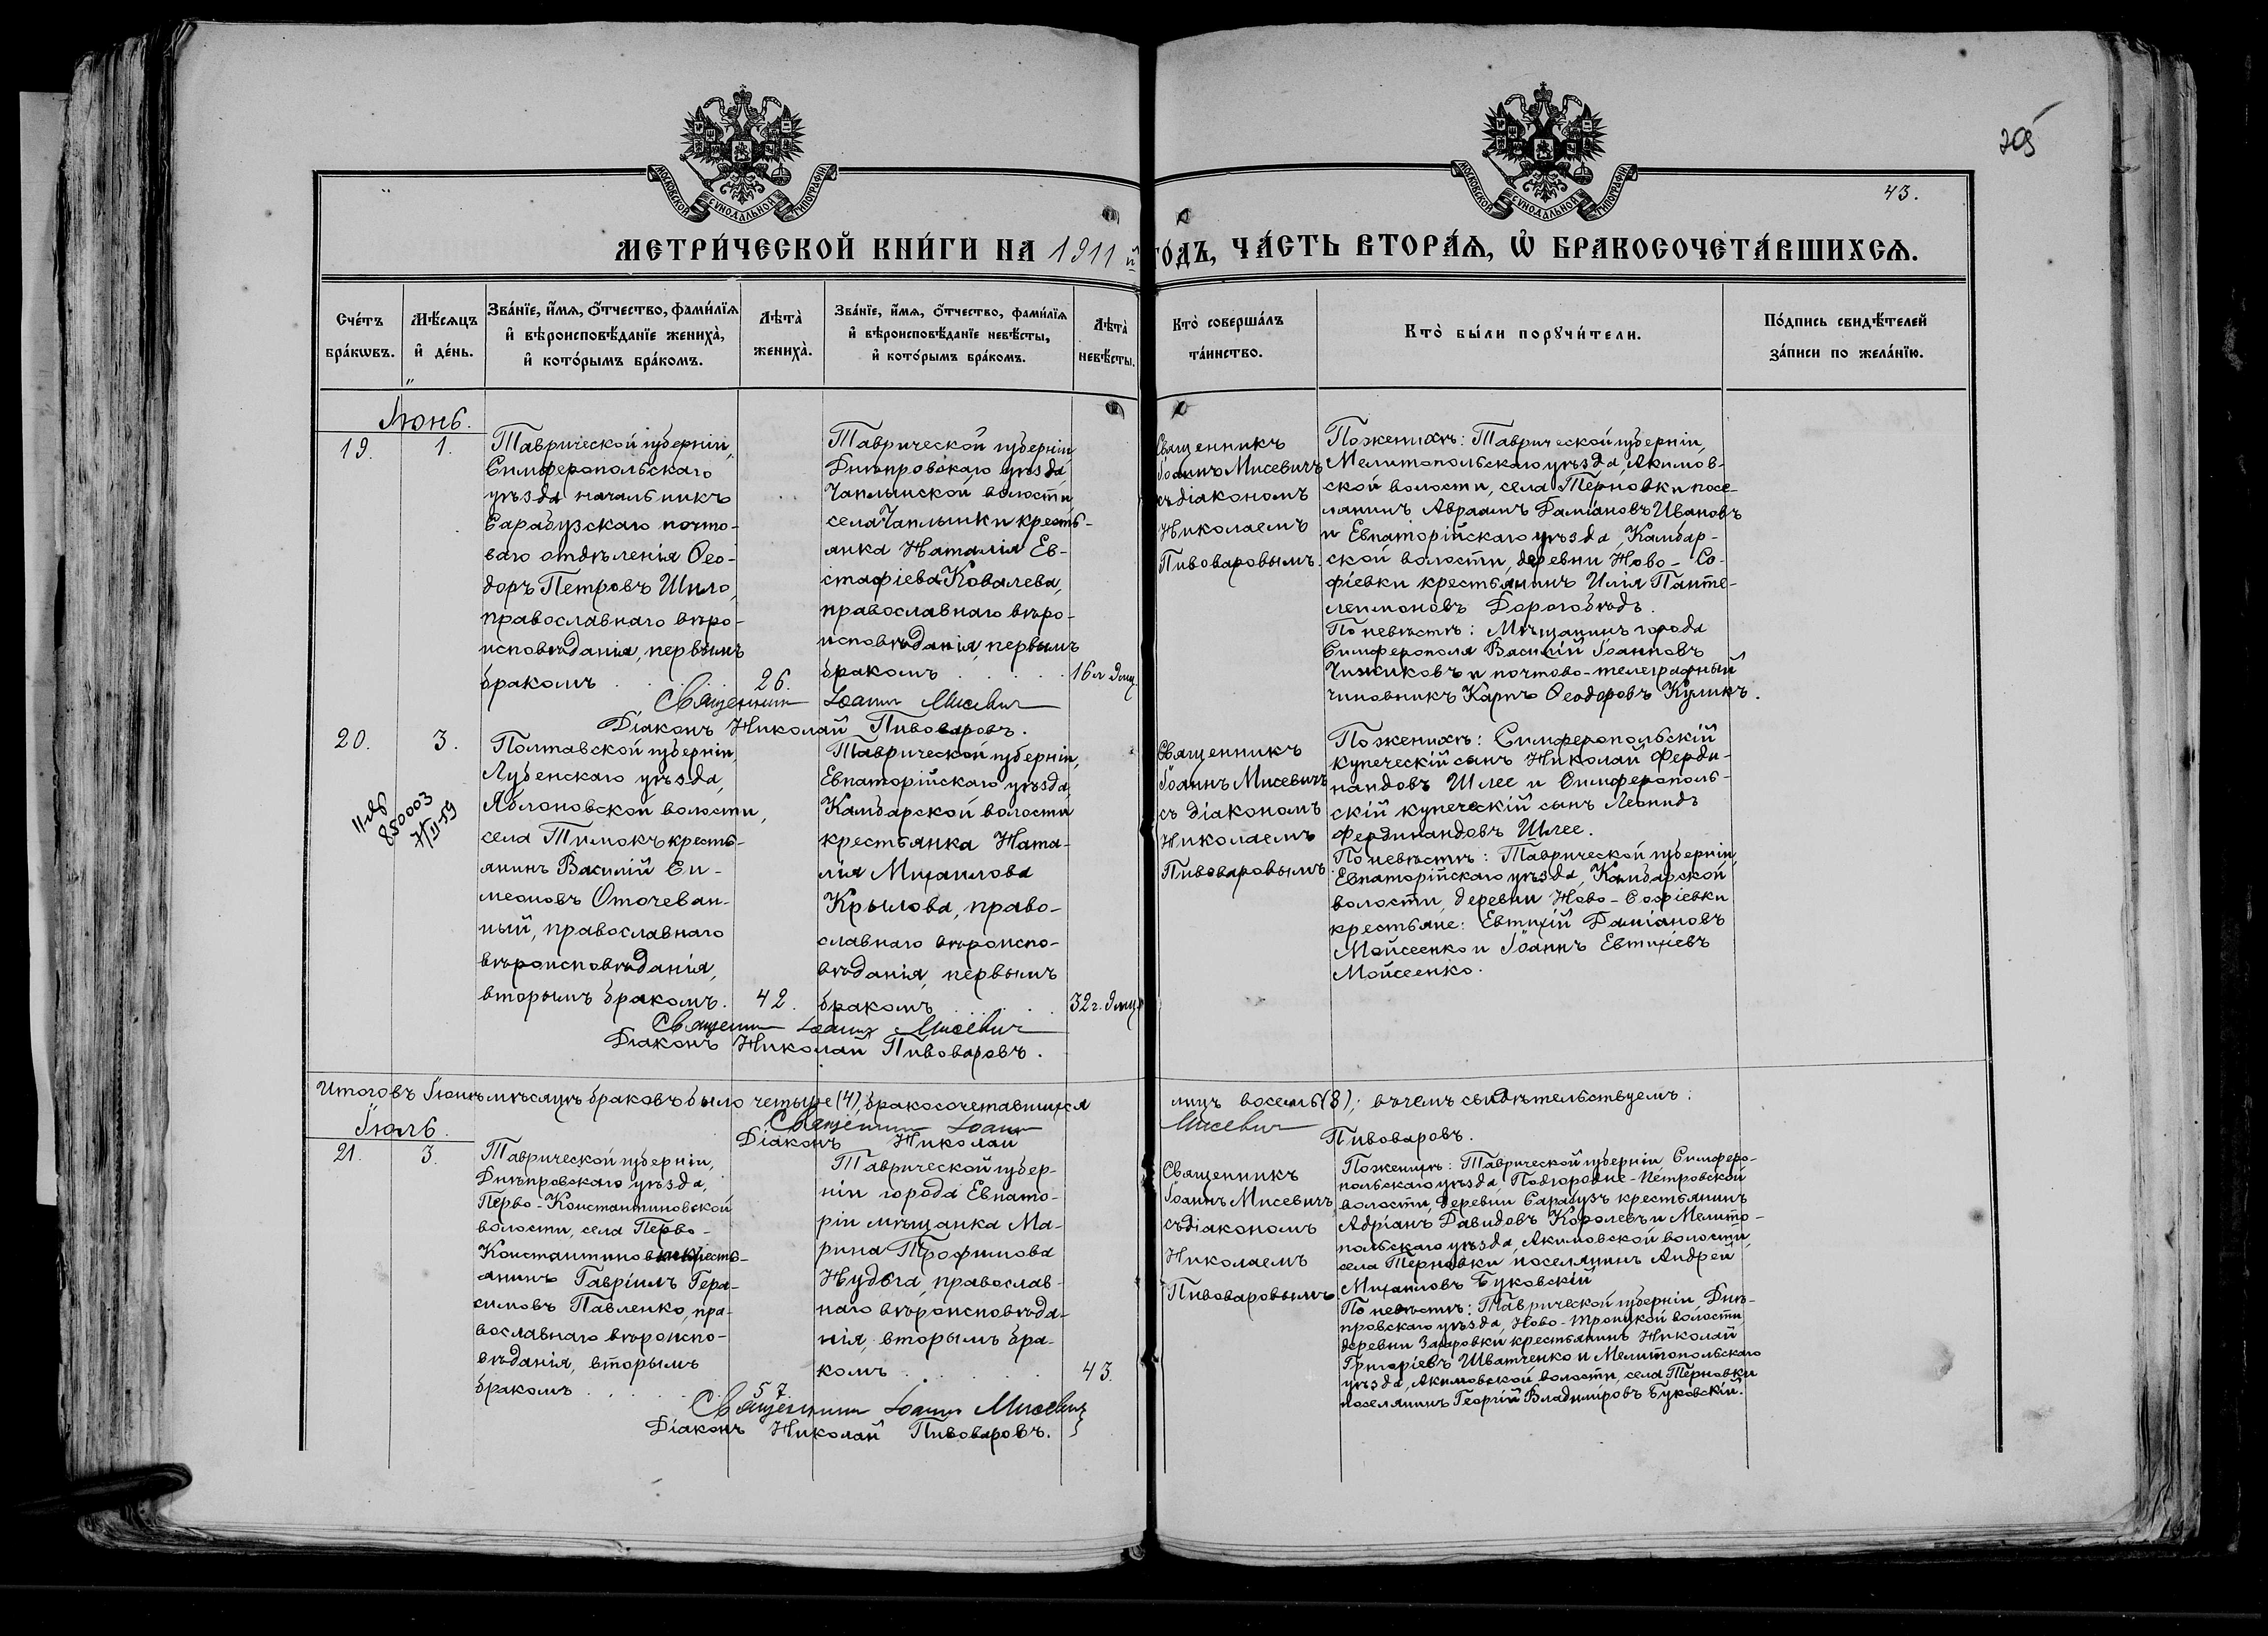 205
43.
МОСКОВСКОЙ СѴНОДАЛЬНОЙ ТИПОГРАФІИ
МОСКОВСКОЙ СѴНОДАЛЬНОЙ ТИПОГРАФІИ
МЕТРИ́ЧЕСКОЙ КНИ́ГИ НА 1911 й ГО́ДЪ, ЧА́СТЬ ВТОРА́Ѧ, Ѽ БРАКОСОЧЕТА́ВШИХСѦ.
Сче́тъ бра́кѡвъ.
Мѣ́сѧцъ и҆ де́нь.
Зва́нїе, и҆́мѧ, ѻ҆́тчество, фами́лїѧ и҆ вѣроисповѣ́данїе жениха̀, и҆ кото́рымъ бра́комъ.
Лѣта̀ жениха̀.
Зва́нїе, и҆́мѧ, ѻ҆́тчество, фами́лїѧ и҆ вѣроисповѣ́данїе невѣ́сты, и҆ кото́рымъ бра́комъ.
Лѣта̀ невѣ́сты.
Кто̀ соверша́лъ та́инство.
Кто̀ бы́ли порꙋчи́тели.
По́дпись свидѣ́телей за́писи по жела́нїю.
Іюнь.
19.
1.
Таврической губерніи,
Симферопольскаго
уѣзда начальникъ
Сарабузскаго почто-
ваго отдѣленія Ѳео-
доръ Петровъ Шило,
православнаго вѣро-
исповѣданія, первымъ
бракомъ
26.
Таврической губерніи
Днѣпровскаго уѣзда,
Чаплынской волости
села Чаплынки кресть-
янка Наталія Ев-
стафіева Ковалева,
православнаго вѣро-
исповѣданія, первымъ
бракомъ
16 л.
Священникъ
Іоаннъ Мисевичъ
съ діакономъ
Николаемъ
Пивоваровымъ.
По женихѣ: Таврической губерніи,
Мелитопольскаго уѣзда, Акимов-
ской волости, села Терновки посе-
лянинъ Авраамъ Даміановъ Ивановъ
и Евпаторійскаго уѣзда, Камбар-
ской волости, деревни Ново-Со-
фіевки крестьянинъ Илія Панте-
леимоновъ Дорогобѣдъ.
По невѣстѣ: Мѣщанинъ города
Симферополя Василій Іоанновъ
Чижиковъ и почтово-телеграфный
чиновникъ Карпъ Ѳеодоровъ Куликъ.
Священникъ Іоаннъ Мисевич
Діаконъ Николай Пивоваровъ.
20.
3.
850003
Полтавской губерніи,
Лубенскаго уѣзда,
Яблоновской волости,
села Тимокъ кресть-
янинъ Василій Си-
меоновъ Оточеван-
ный, православнаго
вѣроисповѣданія,
вторымъ бракомъ.
42.
Таврической губерніи,
Евпаторійскаго уѣзда,
Камбарской волости
крестьянка Ната-
лія Михаилова
Крылова, право-
славнаго вѣроиспо-
вѣданія, первымъ
бракомъ
32 г.
Священникъ
Іоаннъ Мисевичъ
съ діакономъ
Николаемъ
Пивоваровымъ.
По женихѣ: Симферопольскій
купеческій сынъ Николай Ферди-
нандовъ Шлее и Симферополь-
скій купеческій сынъ Леонидъ
Фердинандовъ Шлее.
По невѣстѣ: Таврической губерніи,
Евпаторійскаго уѣзда, Камбарской
волости, деревни Ново-Софіевки
крестьяне: Евтихій Даміановъ
Мойсеенко и Іоаннъ Евтихіевъ
Мойсеенко.
Священник Іоаннъ Мисевич
Діаконъ Николай Пивоваровъ.
Итого въ Іюнѣ мѣсяцѣ браковъ было четыре (4), бракосочетавшихся лицъ восемь (8); въ чемъ свидѣтельствуемъ:
Священник Іоанн Мисевич
Діаконъ Николай Пивоваровъ.
Іюль.
21.
3.
Таврической губерніи,
Днѣпровскаго уѣзда,
Перво-Константиновской
волости, села Перво-
Константиновки кресть-
янинъ Гавріилъ Гера-
симовъ Павленко, пра-
вославнаго вѣроиспо-
вѣданія, вторымъ
бракомъ
57.
Таврической губер-
ніи города Евпато-
ріи мѣщанка Ма-
рина Трофимова
Нудьга, православ-
наго вѣроисповѣда-
нія, вторымъ бра-
комъ
43.
Священникъ
Іоаннъ Мисевичъ
съ діакономъ
Николаемъ
Пивоваровымъ.
По женихѣ: Таврической губерніи Симферо-
польскаго уѣзда Подгородне-Петровской
волости, деревни Сарабузъ крестьянинъ
Адріанъ Давидовъ Королевъ и Мелито-
польскаго уѣзда, Акимовской волости,
села Терновки поселянинъ Андрей
Михаиловъ Буковскій
По невѣстѣ: Таврической губерніи, Днѣ-
провскаго уѣзда, Ново-Троицкой волости
деревни Захаровки крестьянинъ Николай
Григоріевъ Шватченко и Мелитопольскаго
уѣзда, Акимовской волости, села Терновки
поселянинъ Георгій Владиміровъ Буковскій.
Священникъ Іоаннъ Мисевич
Діаконъ Николай Пивоваровъ.